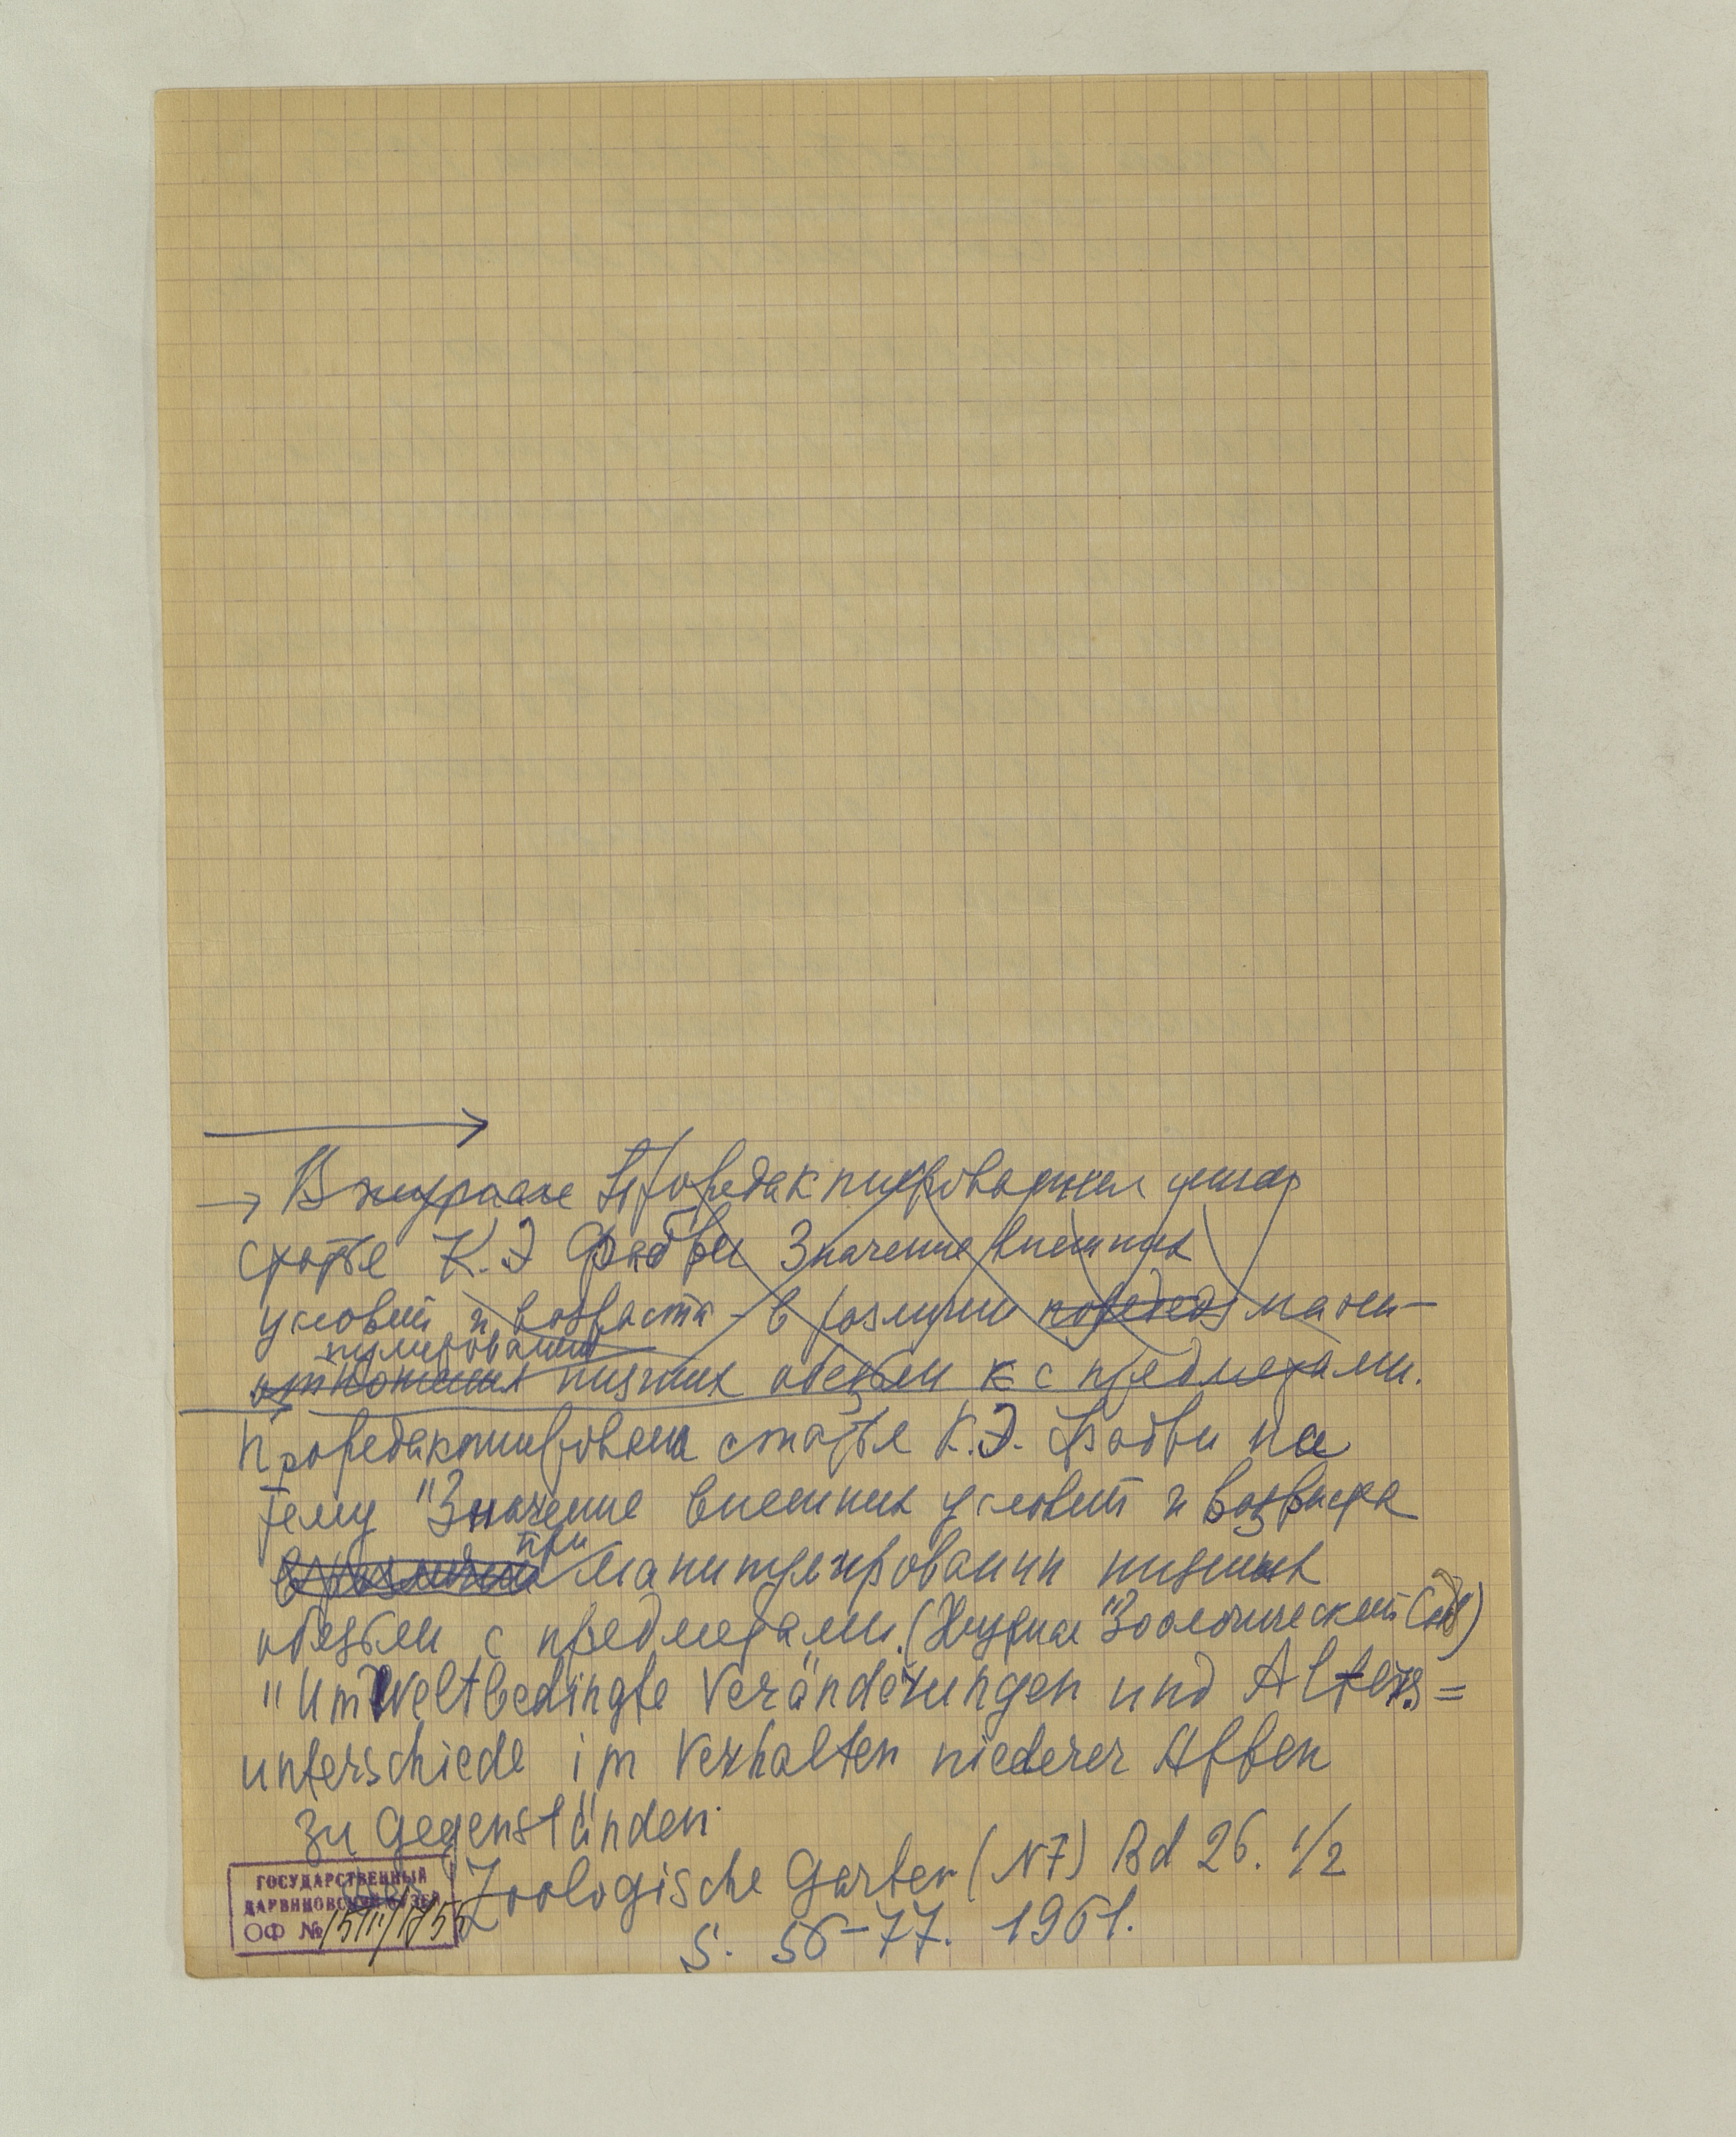 → В журнале Проредактирована
статье К.Э Фабри Значение внешних
условий и возраста - в различии повед мани-
пулирования
отношения низших обезьян к с предметами.
Проредактирована статья К.Э. Фабри на
тему "Значение внешних условий и возраста
при
в различии манипулировании низших
обезьян с предметами. (Журнал "Зоологический Сад)
"Umweltbedingte Veränderungen und Alters=
unterschiede im Verhalten niederer Affen
zu Gegenständen.
Zoologische Garten (N7) Bd 26. 1/2
S. 56-77. 1961.
ГОСУДАРСТВЕННЫЙ
ДАРВИНОВСКИЙ МУЗЕЙ
ОФ №